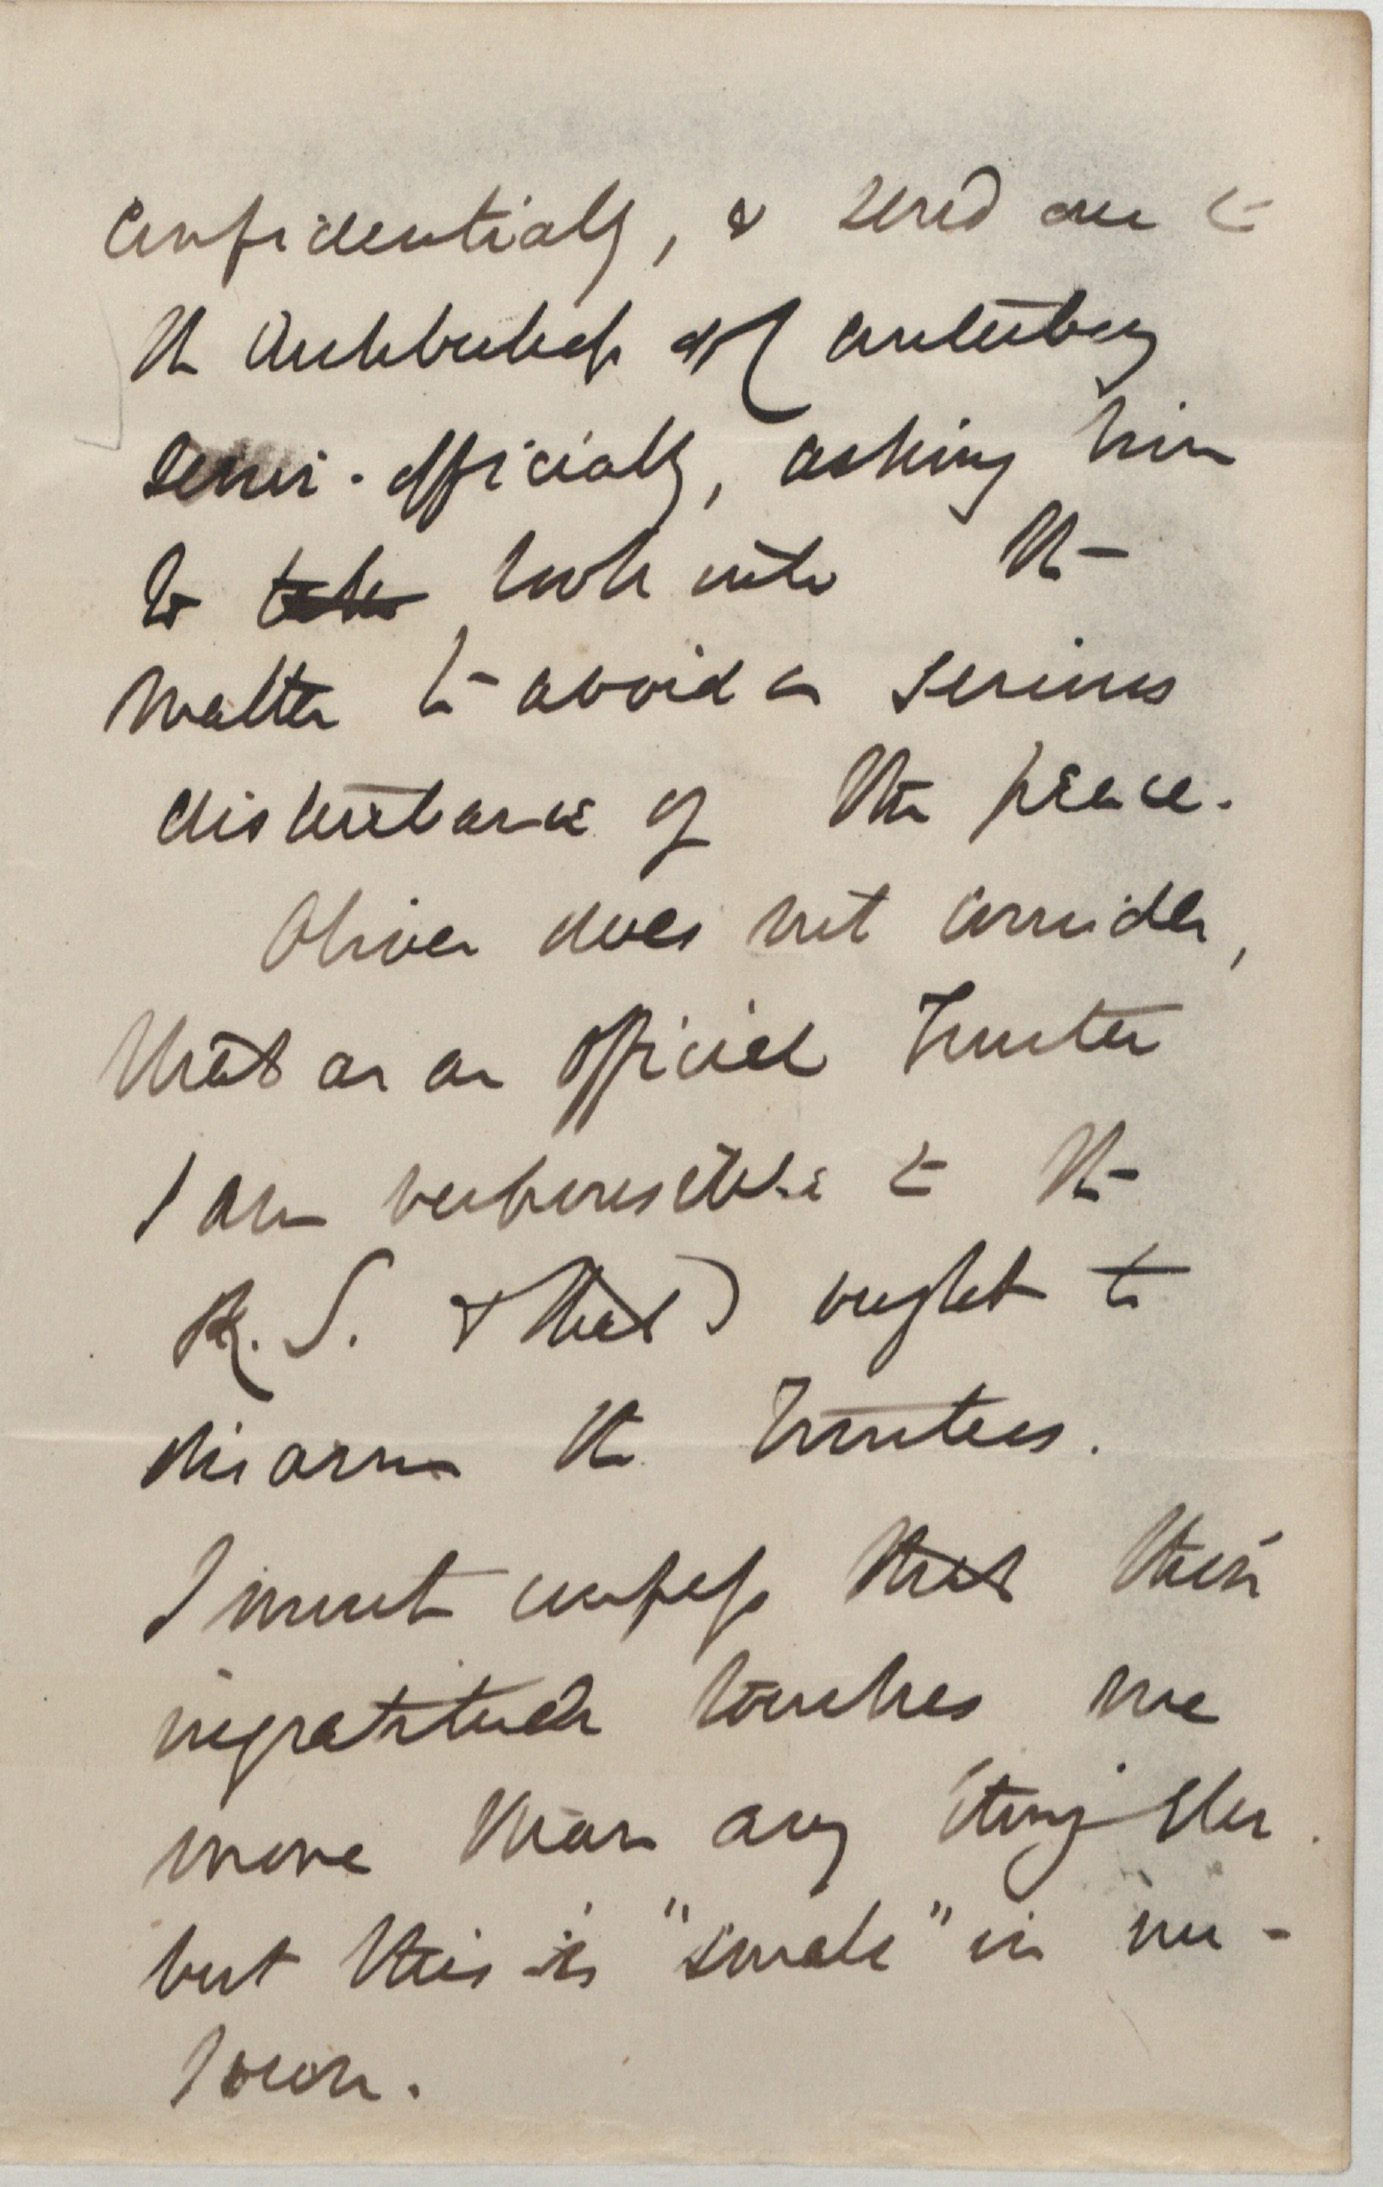 confidentially, & send one to
the Archbishop of Canterbury
semi-officially, asking him
to take look into the
matter to avoid a serious
disturbance of the peace.
Oliver does not consider,
that as an official Trustee
I am responsible to the
R. S. & that I ought to
disarm the Trustees.
I must confess that their
ingratitude touches me
more than any thing else.
but this is "smale" in me -